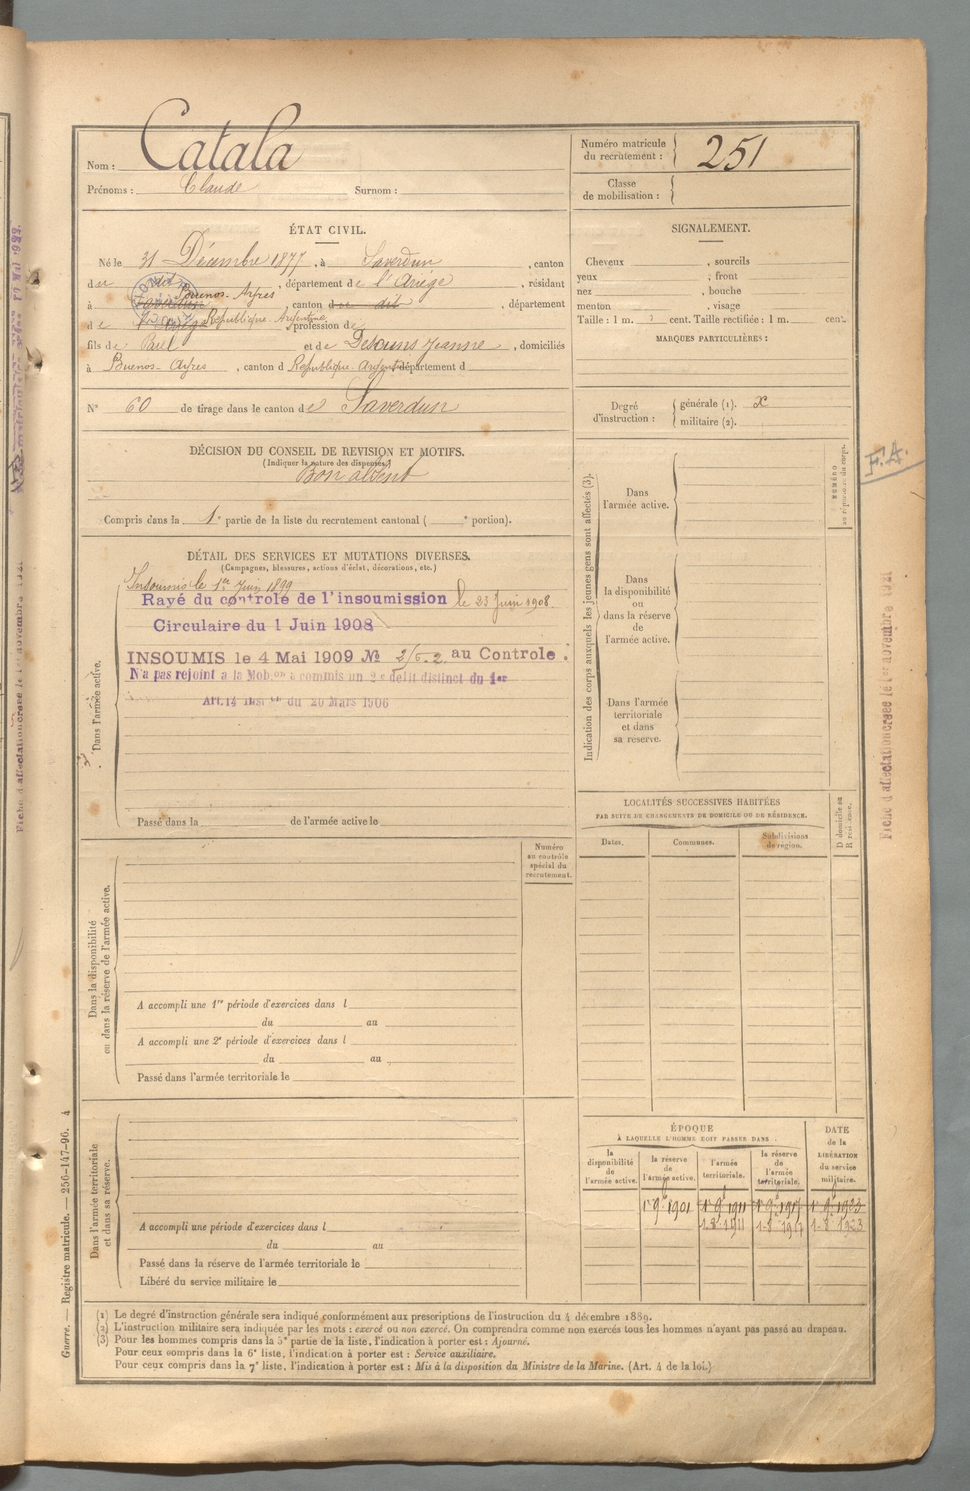 Nom : Catala
Prénoms : Claude Surnom :
Numéro matricule
du recrutement : 251
Classe
de mobilisation :
ÉTAT CIVIL.
Né le 31 Décembre 1877, à Saverdun, canton
du dit, département de l'Ariège, résidant
à Saverdun Buenos-Ayres, canton d de dit, département
de l'Ariège République Argentine, profession de
fils de Paul et de Desouns Jeanne, domiciliés
à Buenos-Ayres, canton d République-Argent département d
N° 60 de tirage dans le canton de Saverdun
DÉCISION DU CONSEIL DE REVISION ET MOTIFS.
(Indiquer la nature des dispenses.)
Bon absent
Compris dans la 1e partie de la liste du recrutement cantonal ( e portion).
DÉTAIL DES SERVICES ET MUTATIONS DIVERSES.
(Campagnes, blessures, actions d'éclat, décorations, etc.)
Dans l'armée active.
Insoumis le 1er Juin 1899
Rayé du controle de l'insoumission le 23 Juin 1908.
Circulaire du 1 Juin 1908
INSOUMIS le 4 Mai 1909 № 2/5.2 au Controle.
N'a pas rejoint a la Mob.on a commis un 2e delit distinct du 1er
Art. 14 Inst on du 20 Mars 1906
Passé dans la de l'armée active le
SIGNALEMENT.
Cheveux , sourcils
yeux ; front
nez , bouche
menton , visage
Taille : 1 m. cent. Taille rectifiée : 1 m. cent.
MARQUES PARTICULIÈRES :
Degré
d'instruction :
générale (1). x
militaire (2).
Indication des corps auxquels les jeunes gens sont affectés (3).
NUMÉRO
au répertoire du corps.
Dans
l'armée active.
Dans
la disponibilité
ou
dans la réserve
de
l'armée active.
Dans l'armée
territoriale
et dans
sa réserve.
F.A.
LOCALITÉS SUCCESSIVES HABITÉES
PAR SUITE DE CHANGEMENTS DE DOMICILE OU DE RÉSIDENCE.
Dates.
Communes.
Subdivisions
de région.
D domicile ou
R résidence.
Numéro
au contrôle
spécial du
recrutement.
Dans la disponibilité
ou dans la réserve de l'armée active.
A accompli une 1re période d'exercices dans l
du au
A accompli une 2e période d'exercices dans l
du au
Passé dans l'armée territoriale le
Dans l'armée territoriale
et dans sa réserve.
A accompli une période d'exercices dans l
du au
Passé dans la réserve de l'armée territoriale le
Libéré du service militaire le
ÉPOQUE
À LAQUELLE L'HOMME DOIT PASSER DANS :
la
disponibilité
de
l'armée active.
la réserve
de
l'armée active.
l'armée
territoriale.
la réserve
de
l'armée
territoriale.
DATE
de la
LIBÉRATION
du service
militaire.
1er 9bre 1901 1er 9bre 1911 1er 9bre 1917 1er 9bre 1923
1-8bre 1911 1-8bre 1917 1-8bre 1923
(1) Le degré d'instruction générale sera indiqué conformément aux prescriptions de l'instruction du 4 décembre 1889.
(2) L'instruction militaire sera indiquée par les mots : exercé ou non exercé. On comprendra comme non exercés tous les hommes n'ayant pas passé au drapeau.
(3) Pour les hommes compris dans la 5e partie de la liste, l'indication à porter est : Ajourné.
Pour ceux compris dans la 6e liste, l'indication à porter est : Service auxiliaire.
Pour ceux compris dans la 7e liste, l'indication à porter est : Mis à la disposition du Ministre de la Marine. (Art. 4 de la loi.)
Guerre. — Registre matricule. — 256-147-96. 4
Fiche d'affectation créée le 1er novembre 1921